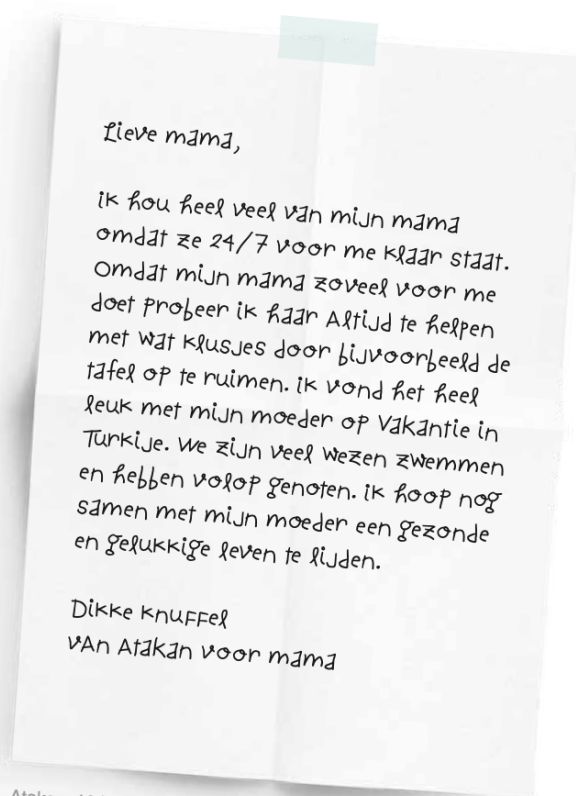 Lieve mama,
ik hou heel veel van mijn mama
omdat ze 24/7 voor me klaar staat.
Omdat mijn mama zoveel voor me
doet probeer ik haar Altijd te helpen
met wat klusjes door bijvoorbeeld de
tafel op te ruimen. ik vond het heel
leuk met mijn moeder op Vakantie in
Turkije. We zijn veel wezen zwemmen
en hebben volop genoten. ik hoop nog
samen met mijn moeder een gezonde
en gelukkige leven te lijden.
Dikke knuffel
vAn Atakan voor mama